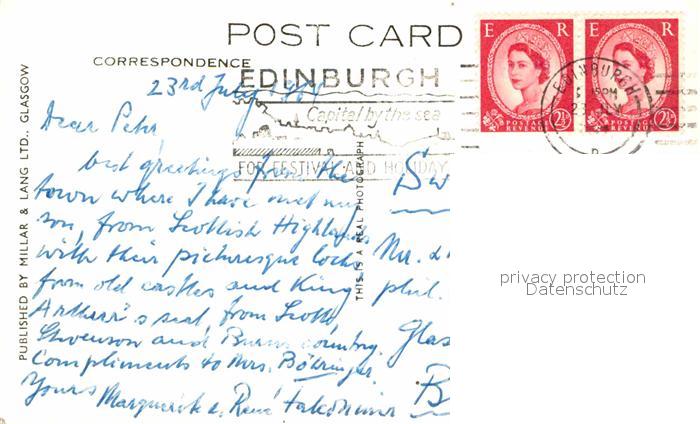 POST CARD
CORRESPONDENCE
PUBLISHED BY MILLAR & LANG LTD., GLASGOW
THIS IS A REAL PHOTOGRAPH
E R
POSTAGE REVENUE
2½
E R
POSTAGE REVENUE
2½
EDINBURGH
EDINBURGH
Capital by the sea
FOR FESTIVAL AND HOLIDAY
23rd July
Dear Petr,
best greetings from the
town where I have met my
son, from Scottish Highlands
with their picturesque lochs
from old castles and King
Arthur's seat, from Scott,
Stevenson and Burns country.
Compliments to Mrs. Böhringer.
Yours Marguerite & René
Sw
Mr.
phil.
Glas
B
privacy protection
Datenschutz